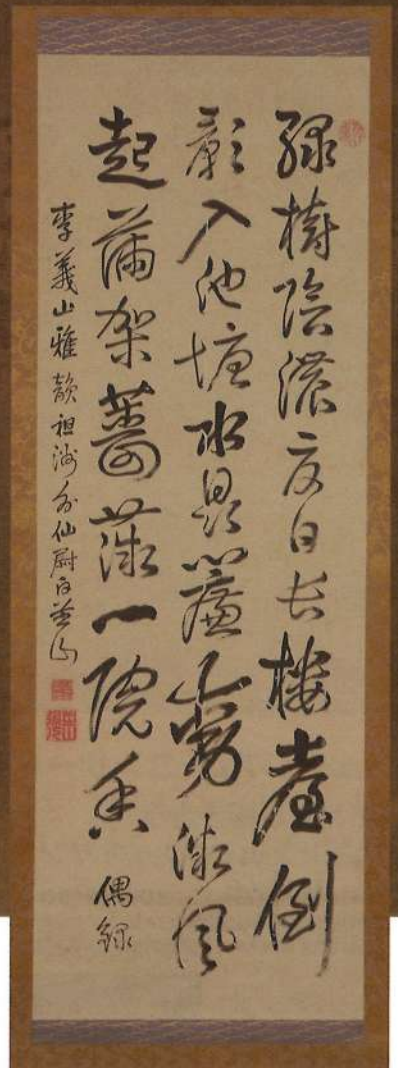 綠樹陰濃夏日長樓臺倒
影入池塘水晶簾動微風
起滿架薔薇一院香 偶錄
李義山雅韻祖洲仙尉